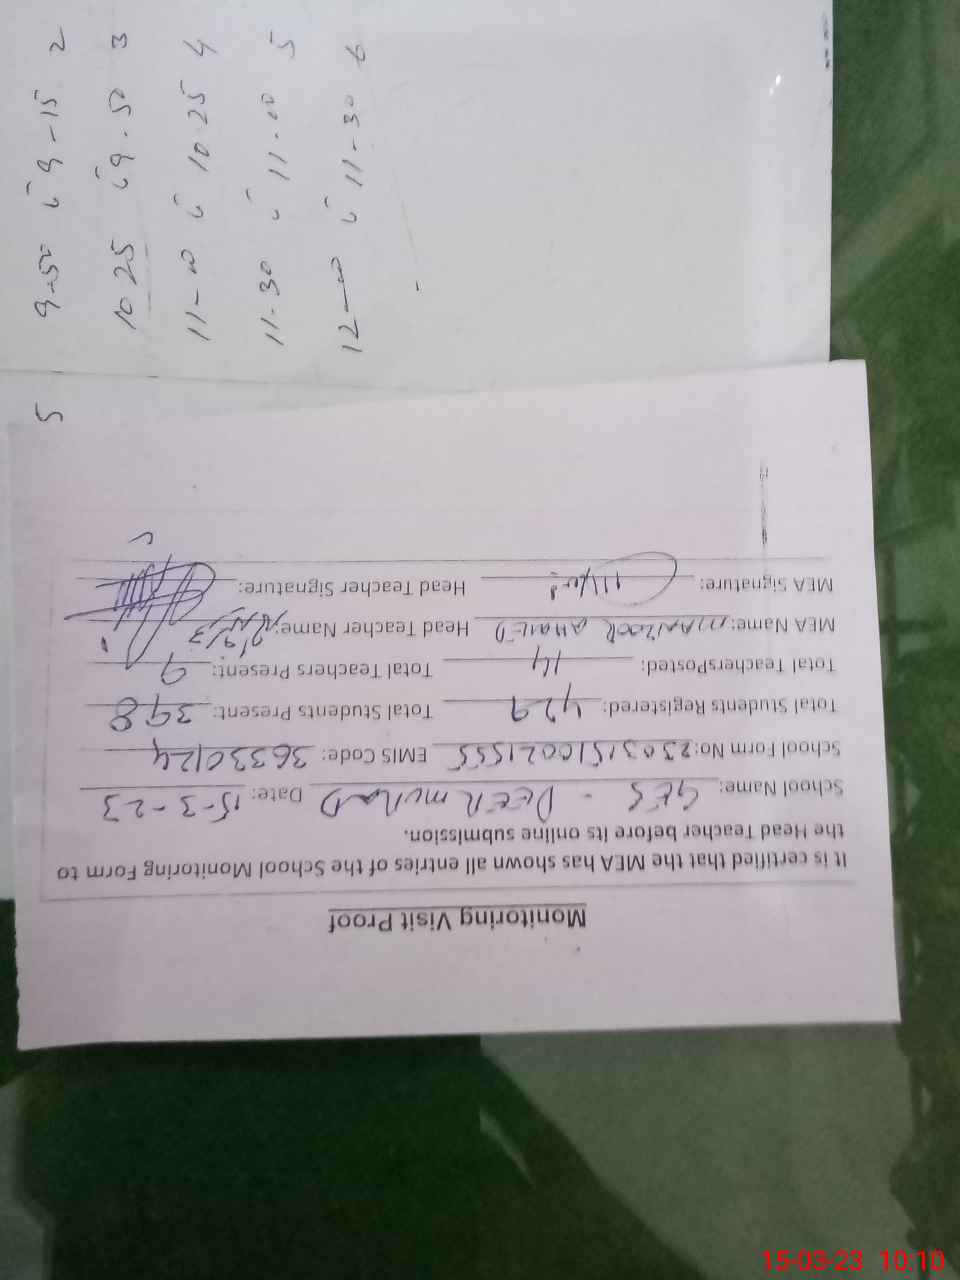 Monitoring Visit Proof
It is certified that the MEA has shown all entries of the School Monitoring Form to
the Head Teacher before its online submission.
School Name: GES - DEER MURAD Date: 15-3-23
School Form No: 23031510021555 EMIS Code: 36330124
Total Students Registered: 429 Total Students Present: 398
Total TeachersPosted: 14 Total Teachers Present: 9
MEA Name: MANZOOR AHMED Head Teacher Name:
MEA Signature: Head Teacher Signature:
2 9-15 تا 9-50
3 9-50 تا 10-25
4 10-25 تا 11-00
5 11-00 تا 11-30
6 11-30 تا 12-00
15-03-23 10:10